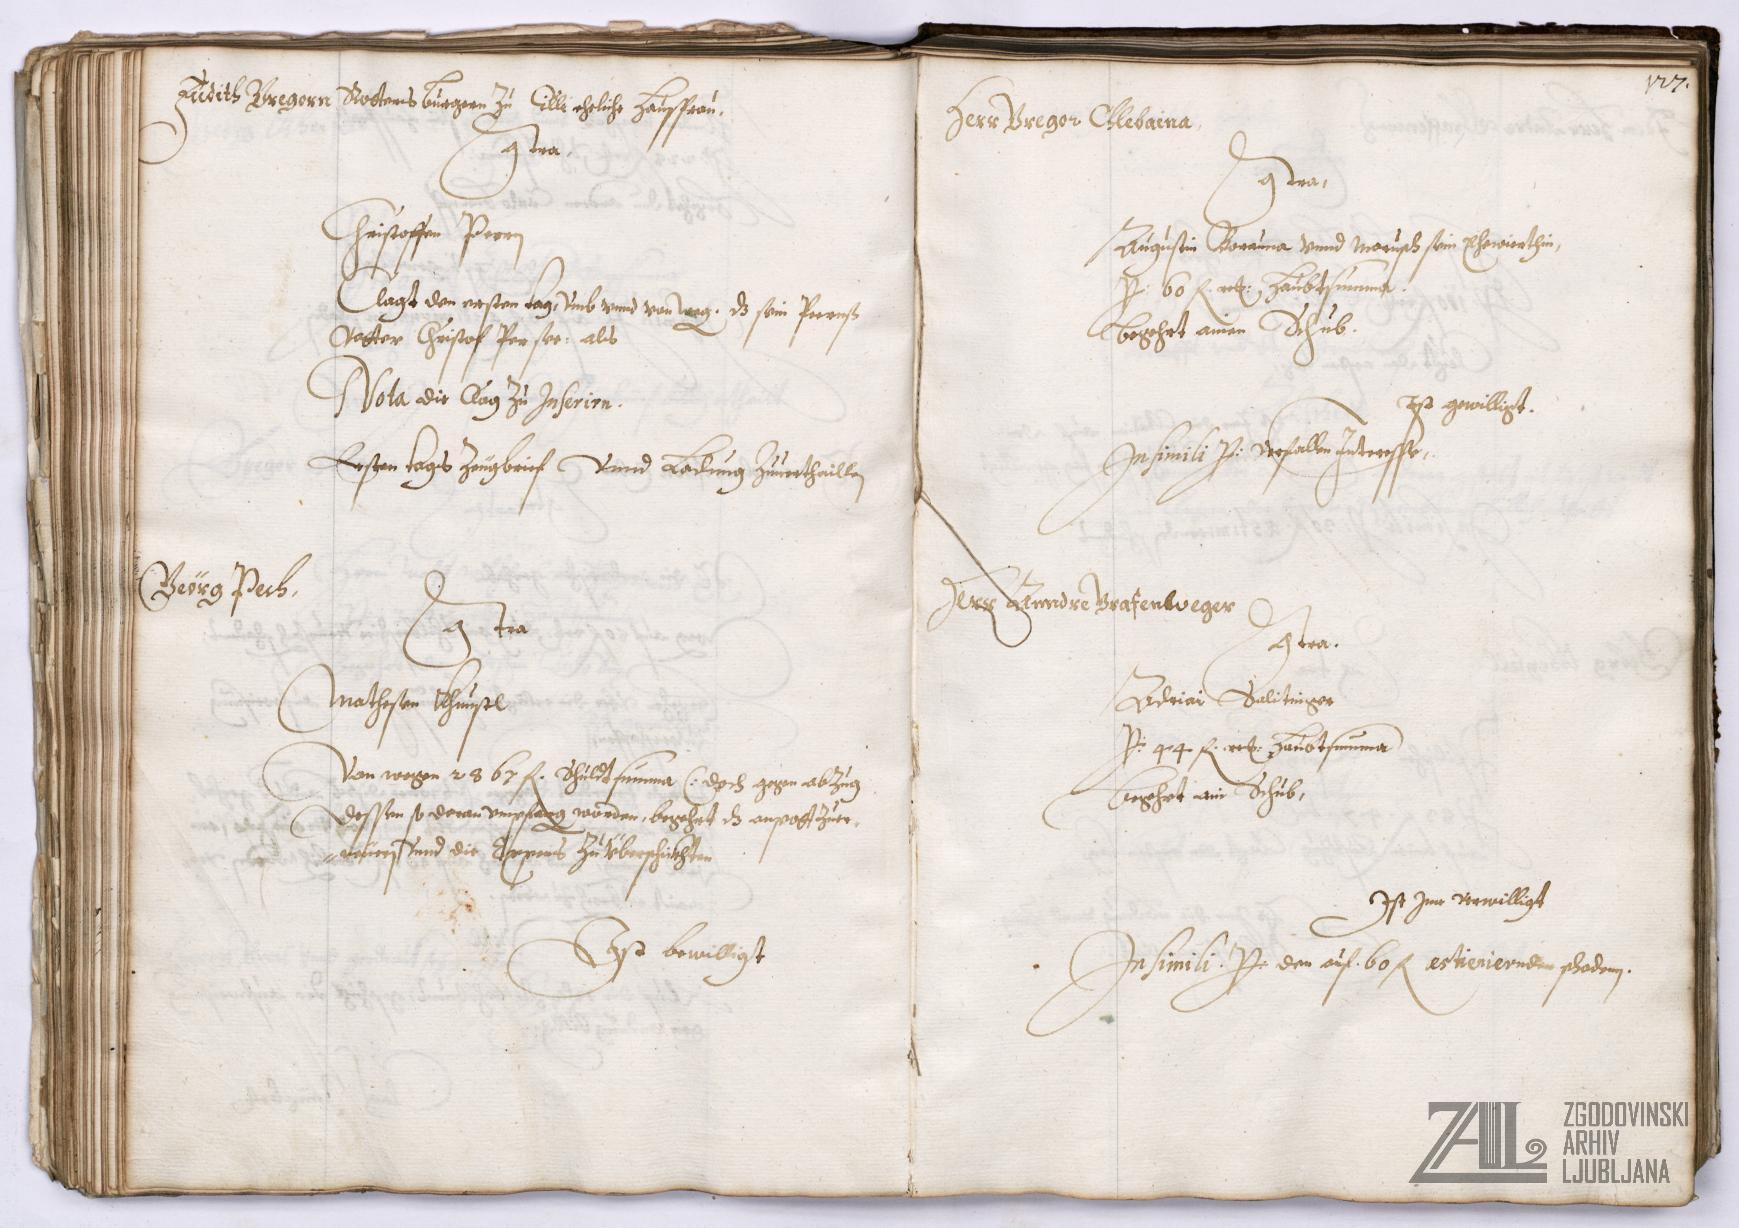 Judith Gregorn Rottens burgern zu Cilli eheliche Haussfrau.
Contra.
Christoffen Perrn
Clagt den ersten tag, Umb unnd von weg. dz sein Perrns
Vetter Christof Per see: als
Nota die Clag zu Inserirn.
Ersten tags Zeugbrief Unnd Ladung Zuerthaillen
Geörg Pech,
Contra
Mathesen Khunstl
Von wegen 2867 f. Schuldt summa (: doch gegen abzug
dessen so daran empfang worden, begehrt dz anpott Zuer-
neuern Unnd die Expens Zu Überschickhten
Ist bewilligt
127.
Herr Gregor Chlebaina,
Contra,
Augustin Vorauna Unnd Maruscha sein Ehewierthin,
P: 60 f. rest: Haubtsumma.
begehrt ainen Schub.
Ist gewilligt.
In simili P: Verfallen Interesse,
Herr Anndre Grafenweger
Contra.
Adriai Salitinger
P: 44 f. rest: Haubtsumma
begehrt ain Schub,
Ist Ime Verwilligt
In simili. P: den auf. 60 f aestimiernden schaden.
ZAL ZGODOVINSKI
ARHIV
LJUBLJANA